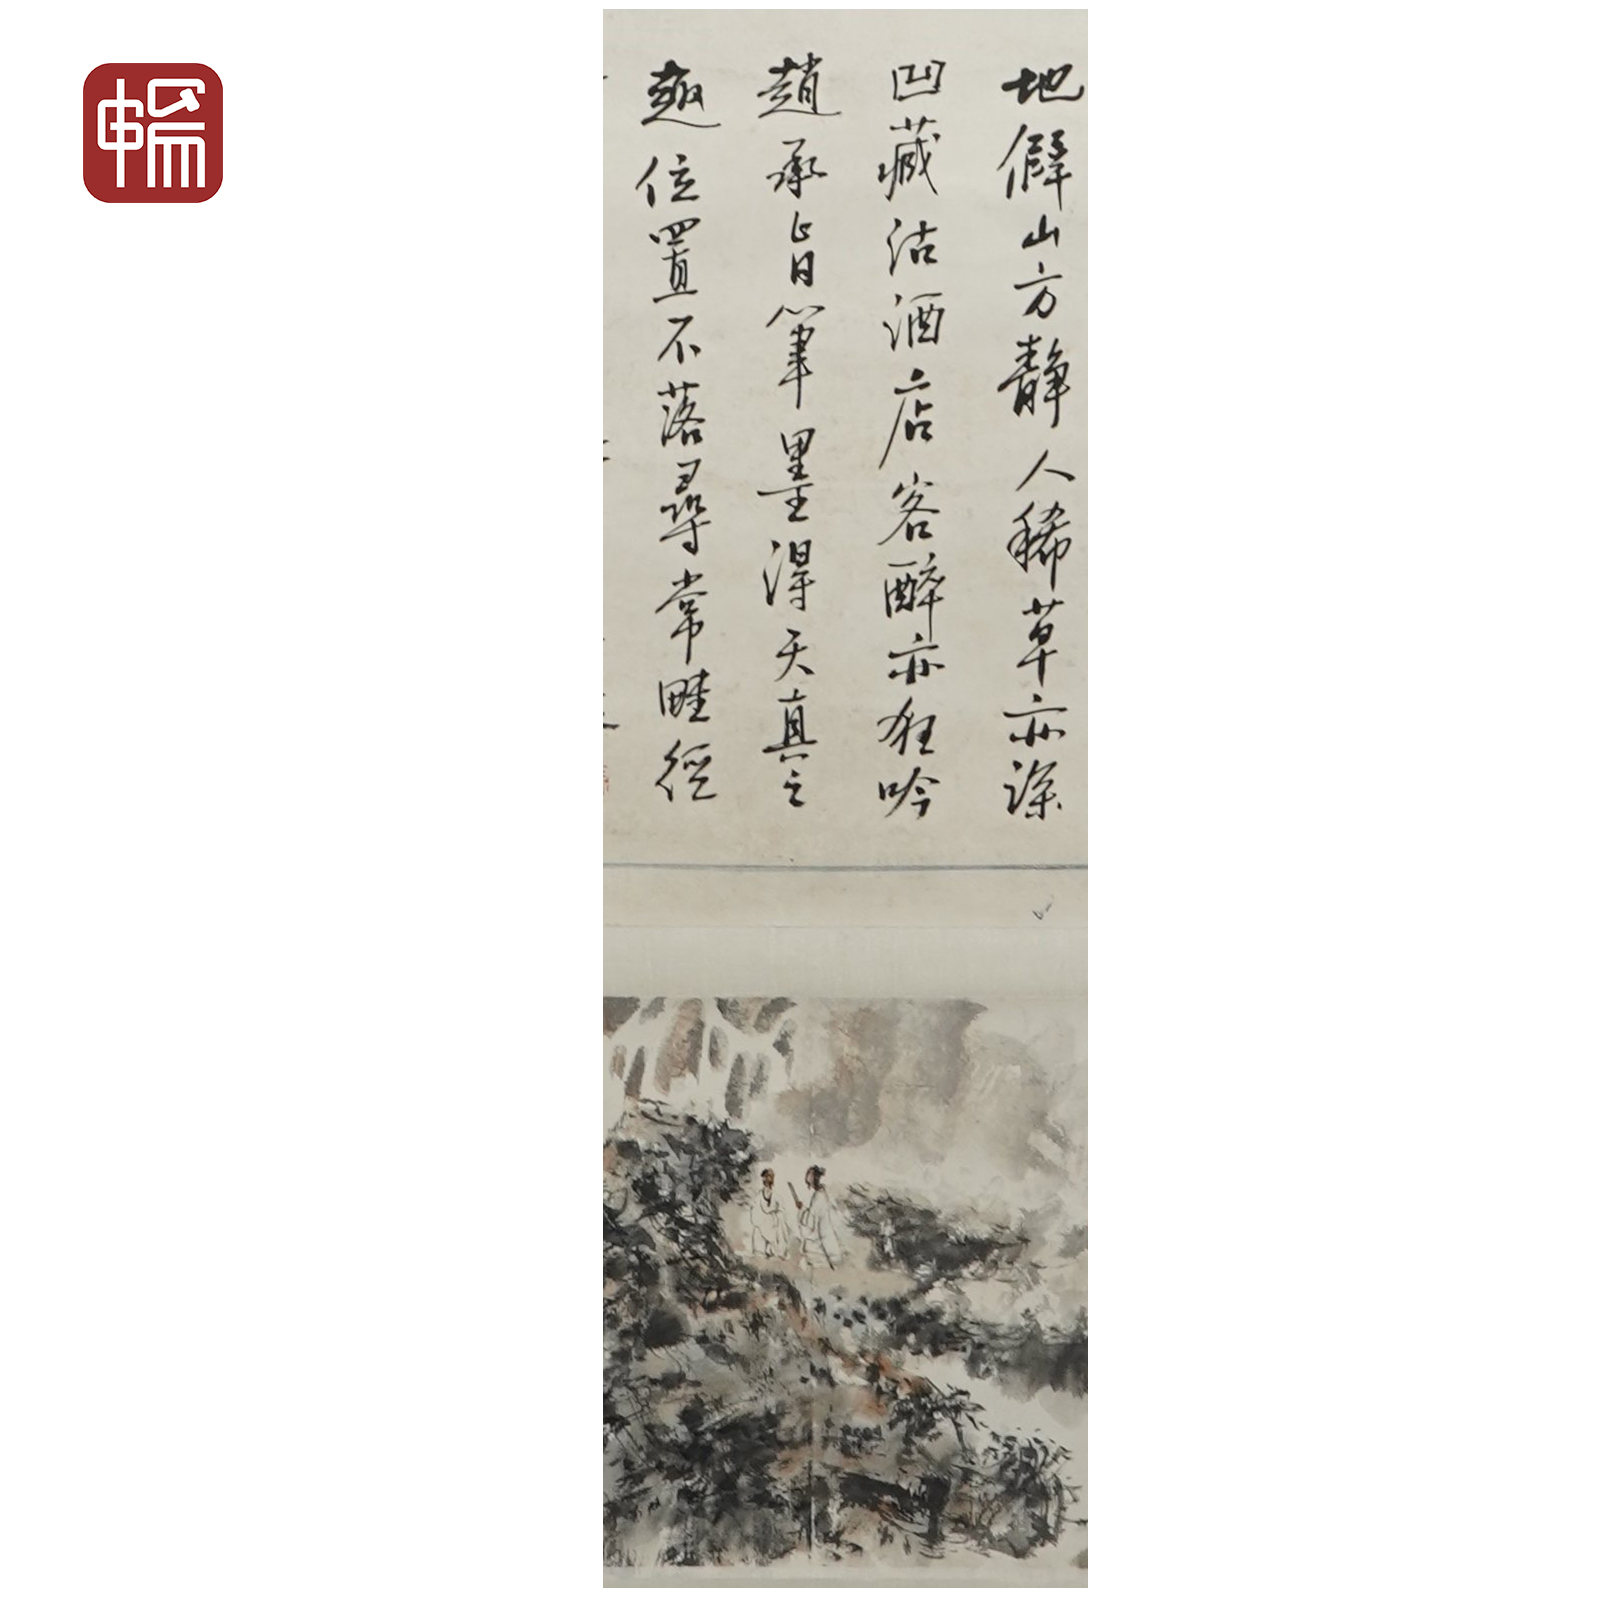 地僻山方静人稀草亦深
凹藏沽酒店客醉亦狂吟
趙承旨筆墨得天真之
趣位置不落尋常畦徑